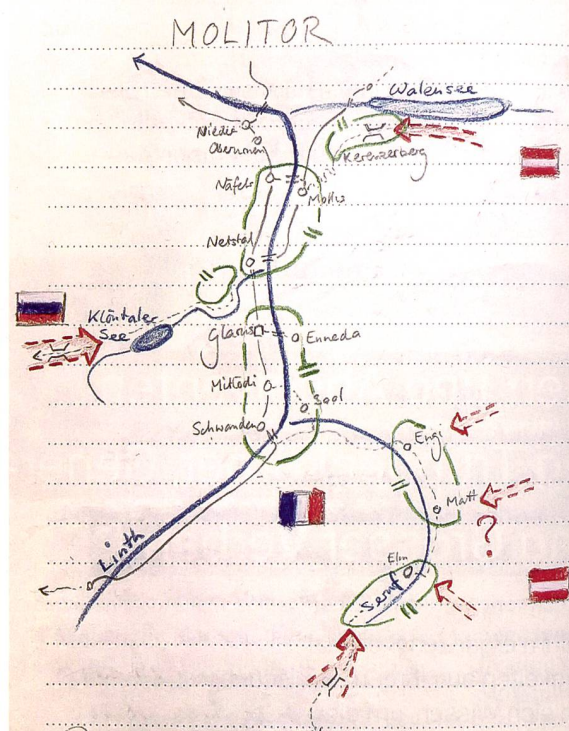 MOLITOR
Walensee
Kerenzerberg
Näfels
Mollis
Netstal
Klöntaler
See
Glarus
Enneda
Mitlödi
Sool
Schwanden
Engi
Matt
?
Linth
Elm
Sernf